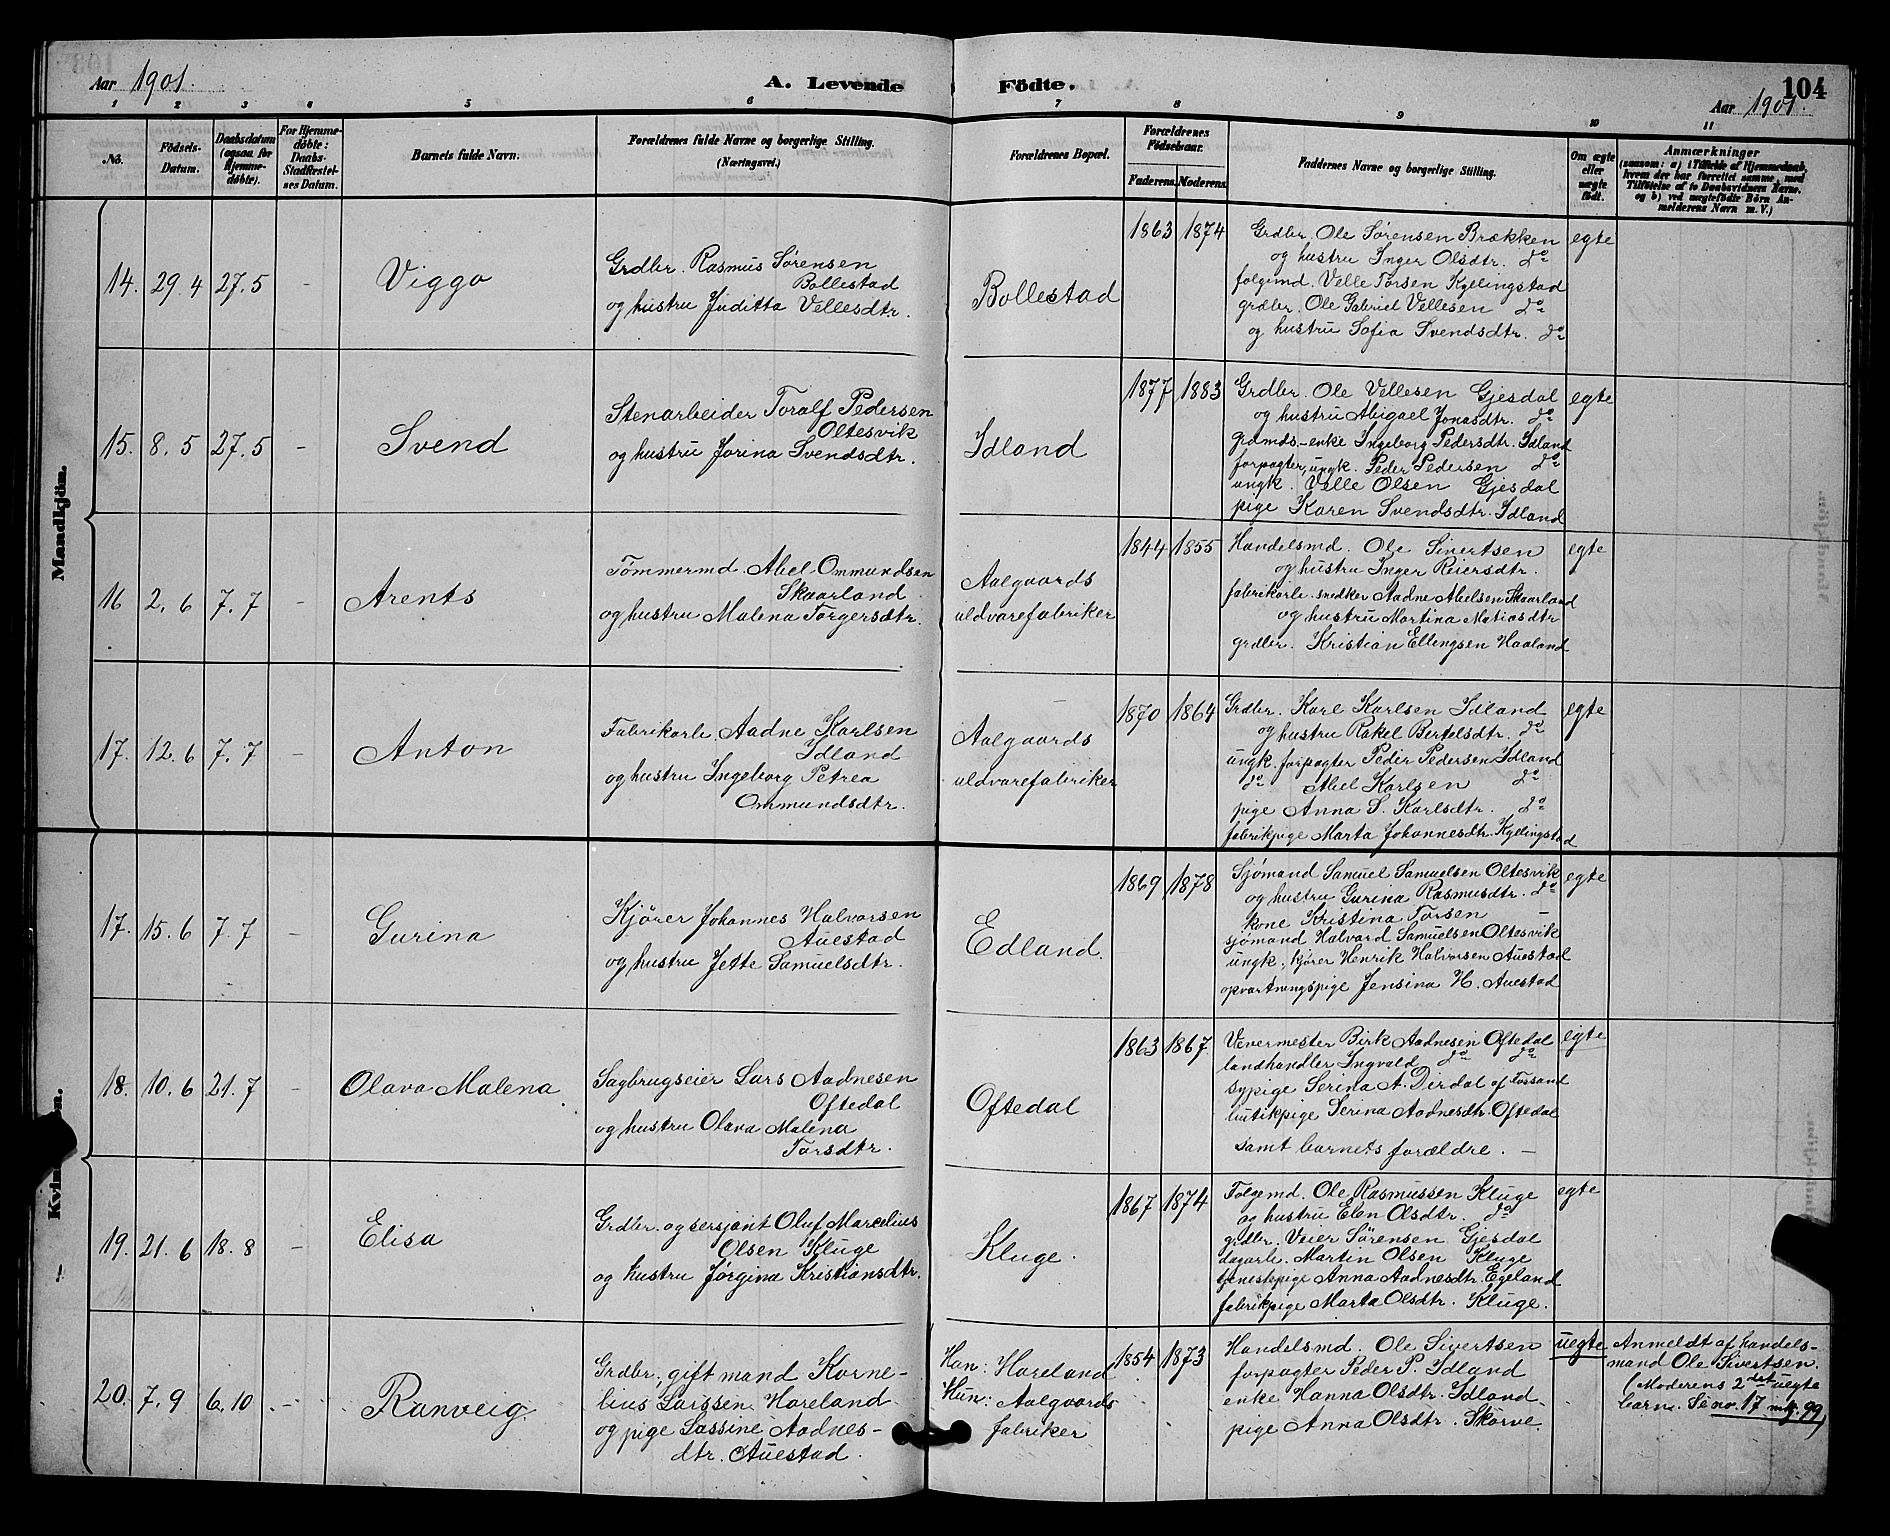 Aar 1901.
A. Levende Födte.
104
Aar 1901.
1 2 3 4 5 6 7 8 9 10 11
No.
Födsels-
Datum.
Daabsdatum
(ogsaa for
Hjemme-
döbte).
For Hjemme-
døbte:
Daabs-
Stadfæstel-
ses Datum.
Barnets fulde Navn.
Forældrenes fulde Navne og borgerlige Stilling.
(Næringsvei.)
Forældrenes Bopæl.
Forældrenes
Fødselsaar.
Faderens. Moderens.
Faddernes Navne og borgerlige Stilling.
Om ægte
eller
uægte
födt.
Anmærkninger
(saasom: a) i Tilfælde af Hjemmedaab,
hvem der har forrettet samme, med
Tilföielse af to Daabsvidners Navne.
og b) ved uægtefödte Börn An-
melderens Navn m. V.)
Mandkjön.
14. 29.4 27.5 - Viggo
Grdbr. Rasmus Sørensen
Bollestad
og hustru Juditta Vellesdtr.
Bollestad
1863 1874
Grdbr. Ole Sørensen Brækken
og hustru Inger Olsdtr. do
folgemd. Velle Torsen Kyllingstad
grdbr. Ole Gabriel Vellesen do
og hustru Sofia Svendsdtr. do
egte
15. 8.5 27.5 - Svend
Stenarbeider Toralf Pedersen
Oltesvik
og hustru Jorina Svendsdtr.
Idland
1877 1883
Grdbr. Ole Vellesen Gjesdal
og hustru Abigael Jonasdtr. do
grdmds.-enke Ingeborg Pedersdtr. Idland
forpagter, ungk. Peder Pedersen do
ungk. Velle Olsen Gjesdal
pige Karen Svendsdtr. Idland
egte
16 2.6 7.7 - Arents
Tömmermd. Abel Ommundsen
Skaarland
og hustru Malena Torgersdtr.
Aalgaards
uldvarefabriker
1844 1855
Handelsmd. Ole Sivertsen
og hustru Inger Reiersdtr.
fabrikarb. snedker Aadne Abelsen Skaarland
og hustru Martina Matiasdtr
grdbr. Kristian Ellingsen Haaland
egte
17. 12.6 7.7 - Anton
Fabrikarb. Aadne Karlsen
Idland
og hustru Ingeborg Petrea
Ommundsdtr.
Aalgaards
uldvarefabriker
1870 1864
Grdbr. Karl Karlsen Idland
og hustru Rakel Bertelsdtr. do
ungk. forpagter Peder Pedersen Idland
do Abel Karlsen do
pige Anna S. Karlsdtr. do
fabrikpige Marta Johannesdtr. Kyllingstad
egte
17. 15.6 7.7 - Gurina
Kjører Johannes Halvorsen
Auestad
og hustru Jette Samuelsdtr.
Edland.
1869 1878
Sjømand Samuel Samuelsen Oltesvik
og hustru Gurina Rasmusdtr. do
kone Kristina Torsen -
sjømand Halvard Samuelsen Oltesvik
ungk. kjører Henrik Halvorsen Auestad
opvartningspige Jensina H. Auestad
egte
18. 10.6 21.7 - Olava Malena
Sagbrugseier Lars Aadnesen
Oftedal
og hustru Olava Malena
Torsdtr.
Oftedal
1863 1867
Vævermester Birk Aadnesen Oftedal
landhandler Ingvald do do
sypige Serina A. Dirdal af Fossand
butikpige Serina Aadnesdtr. Oftedal
samt barnets forældre. -
egte
19. 21.6 18.8 - Elisa
Grdbr. og sersjant Oluf Marcelius
Olsen Kluge
og hustru Jørgina Kristiansdtr.
Kluge.
1867 1874
Folgemd. Ole Rasmussen Kluge
og hustru Elen Olsdtr. do
grdbr. Veier Sørensen Gjesdal
dagarb. Martin Olsen Kluge
tjenestpige Anna Aadnesdtr. Egeland
fabrikpige Marta Olsdtr. Kluge.
egte
20. 7.9 6.10 - Ranveig.
Grdbr., gift mand Korne-
lius Larssen Høreland
og pige Lassine Aadnes-
dtr. Auestad.
Han: Høreland
Hun: Aalgaards
fabriker
1854 1873
Handelsmd. Ole Sivertsen
forpagter Peder P. Idland
enke Hanna Olsdtr. Idland
pige Anna Olsdtr. Skørve
uegte
Anmeldt af handels-
mand Ole Sivertsen.
(Moderens 2det uegte
barn. Se no. 17 mkj. 99)